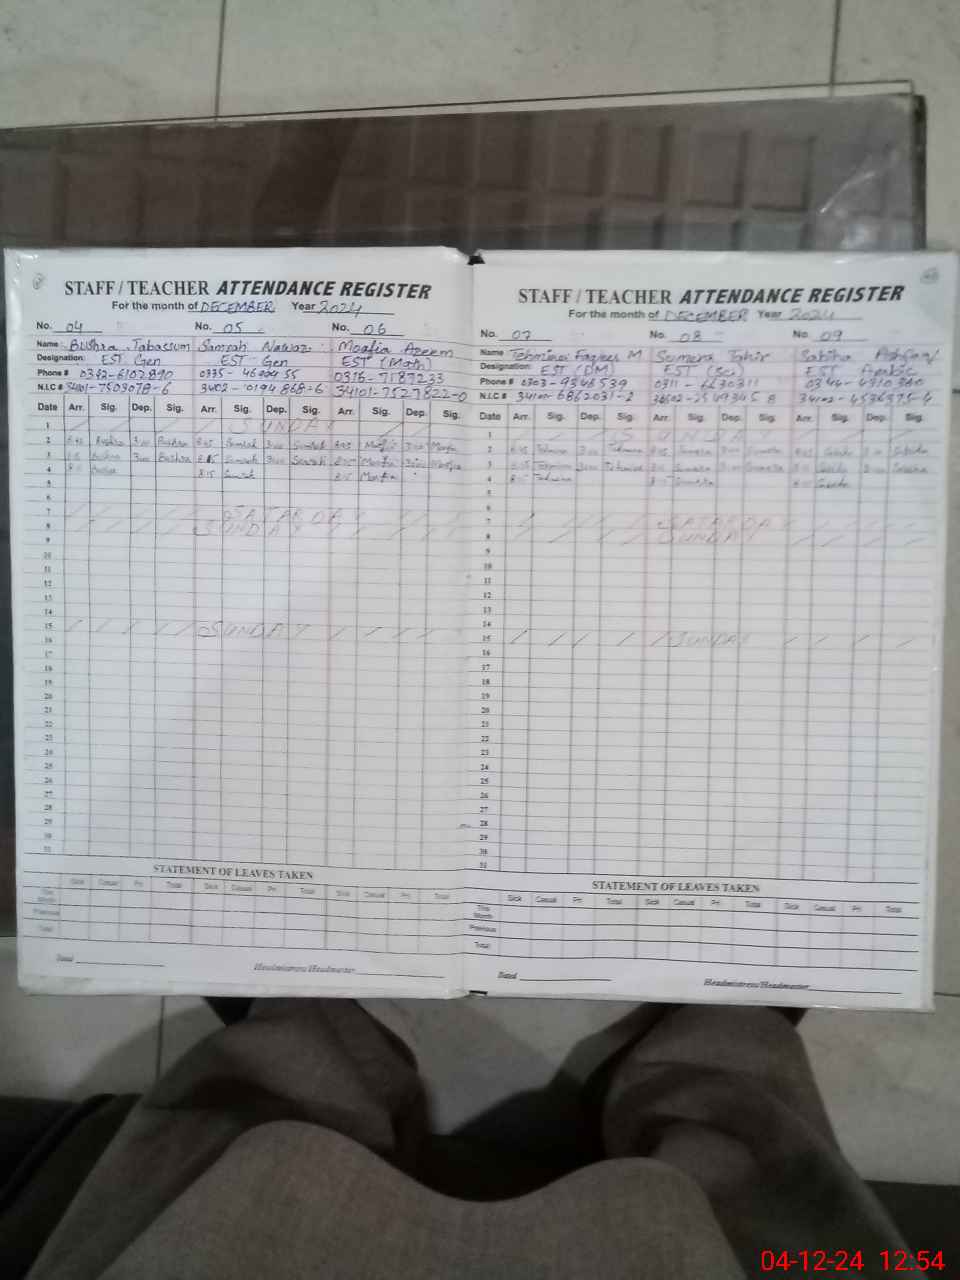 STAFF / TEACHER ATTENDANCE REGISTER
For the month of DECEMBER Year 2024
No. 04 No. 05 No. 06
Name: Bushra Tabassum Samrah Nawaz Moafia Azeem
Designation: EST Gen EST Gen EST (Math)
Phone # 0332-6107890 0335- 0316-7187233
N.I.C # 34101-7503078-6 34101-7527822-0
Date Arr. Sig. Dep. Sig. Arr. Sig. Dep. Sig. Arr. Sig. Dep. Sig.
1 SUNDAY
2 8:45 Bushra 3:00 Bushra 8:45 Samrah 3:00 Samrah 8:45 Moafia 3:00 Moafia
3 8:15 Bushra 3:00 Bushra 8:15 Samrah 3:00 Samrah 8:15 Moafia 3:00 Moafia
4 8:15 Bushra 8:15 Samrah 8:15 Moafia
5
6
7 SATARDAY
8 SUNDAY
9
10
11
12
13
14
15 SUNDAY
16
17
18
19
20
21
22
23
24
25
26
27
28
29
30
31
STATEMENT OF LEAVES TAKEN
Sick Casual Pri Total Sick Casual Pri Total Sick Casual Pri Total
This Month
Previous
Total
Dated
Headmistress/Headmaster
STAFF / TEACHER ATTENDANCE REGISTER
For the month of DECEMBER Year 2024
No. 07 No. 08 No. 09
Name Tehmina M Sumera Tahir Sabiha Ashfaq
Designation: EST (DM) EST (Sci) EST Arabic
Phone # 0303-9548539 0311- 0344-4910
N.I.C # 34101-6862031-2 34102-4536375-4
Date Arr. Sig. Dep. Sig. Arr. Sig. Dep. Sig. Arr. Sig. Dep. Sig.
1 SUNDAY
2 8:45 Tehmina 3:00 Tehmina 8:45 Sumera 3:00 Sumera 8:45 Sabiha 3:00 Sabiha
3 8:15 Tehmina 3:00 Tehmina 8:15 Sumera 3:00 Sumera 8:15 Sabiha 3:00 Sabiha
4 8:15 Tehmina 8:15 Sumera 8:15 Sabiha
5
6
7 SATARDAY
8 SUNDAY
9
10
11
12
13
14
15 SUNDAY
16
17
18
19
20
21
22
23
24
25
26
27
28
29
30
31
STATEMENT OF LEAVES TAKEN
Sick Casual Pri Total Sick Casual Pri Total Sick Casual Pri Total
This Month
Previous
Total
Dated
Headmistress/Headmaster
04-12-24 12:54